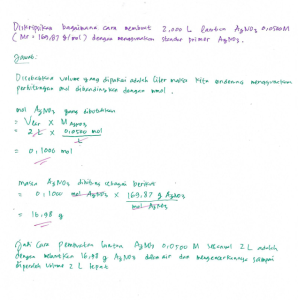 Diskripsikan bagaimana cara membuat 2,000 L larutan AgNO3 0,0500 M
(Mr = 169,87 g/mol) dengan menggunakan standar primer AgNO3.
Jawab:
Disebabkan volume yang dipakai adalah Liter maka kita cenderung menggunakan
perhitungan mol dibandingkan dengan mmol.
mol AgNO3 yang dibutuhkan
= V x M AgNO3
= 2 L x 0,0500 mol
L
= 0,1000 mol
massa AgNO3 dihitung sebagai berikut
= 0,1000 mol AgNO3 x 169,87 g AgNO3
mol AgNO3
= 16,98 g
Jadi Cara Pembuatan larutan AgNO3 0,0500 M sebanyak 2 L adalah
dengan melarutkan 16,98 g AgNO3 dalam air dan mengencerkannya sampai
diperoleh volume 2 L tepat